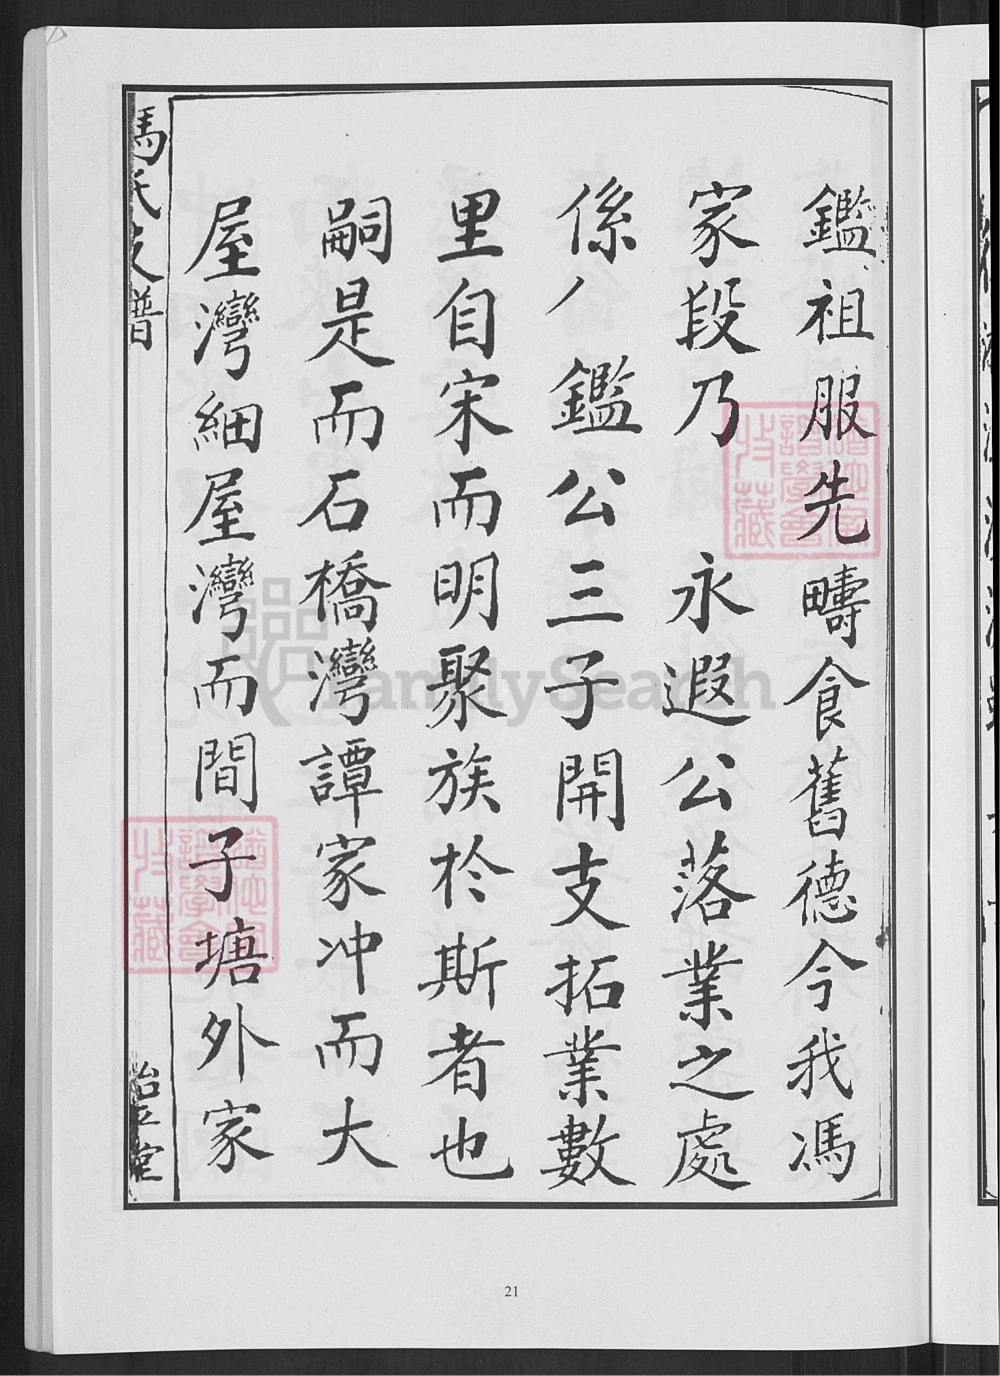 鑑祖服先疇食舊德今我馮
家段乃 永遐公落業之處
係八 鑑公三子開支拓業數
里自宋而明聚族於斯者也
嗣是而石橋灣譚家冲而大
屋灣細屋灣而間子塘外家
馮氏支譜
治平堂
收藏
譜學會
收藏
譜學會
FamilySearch
21